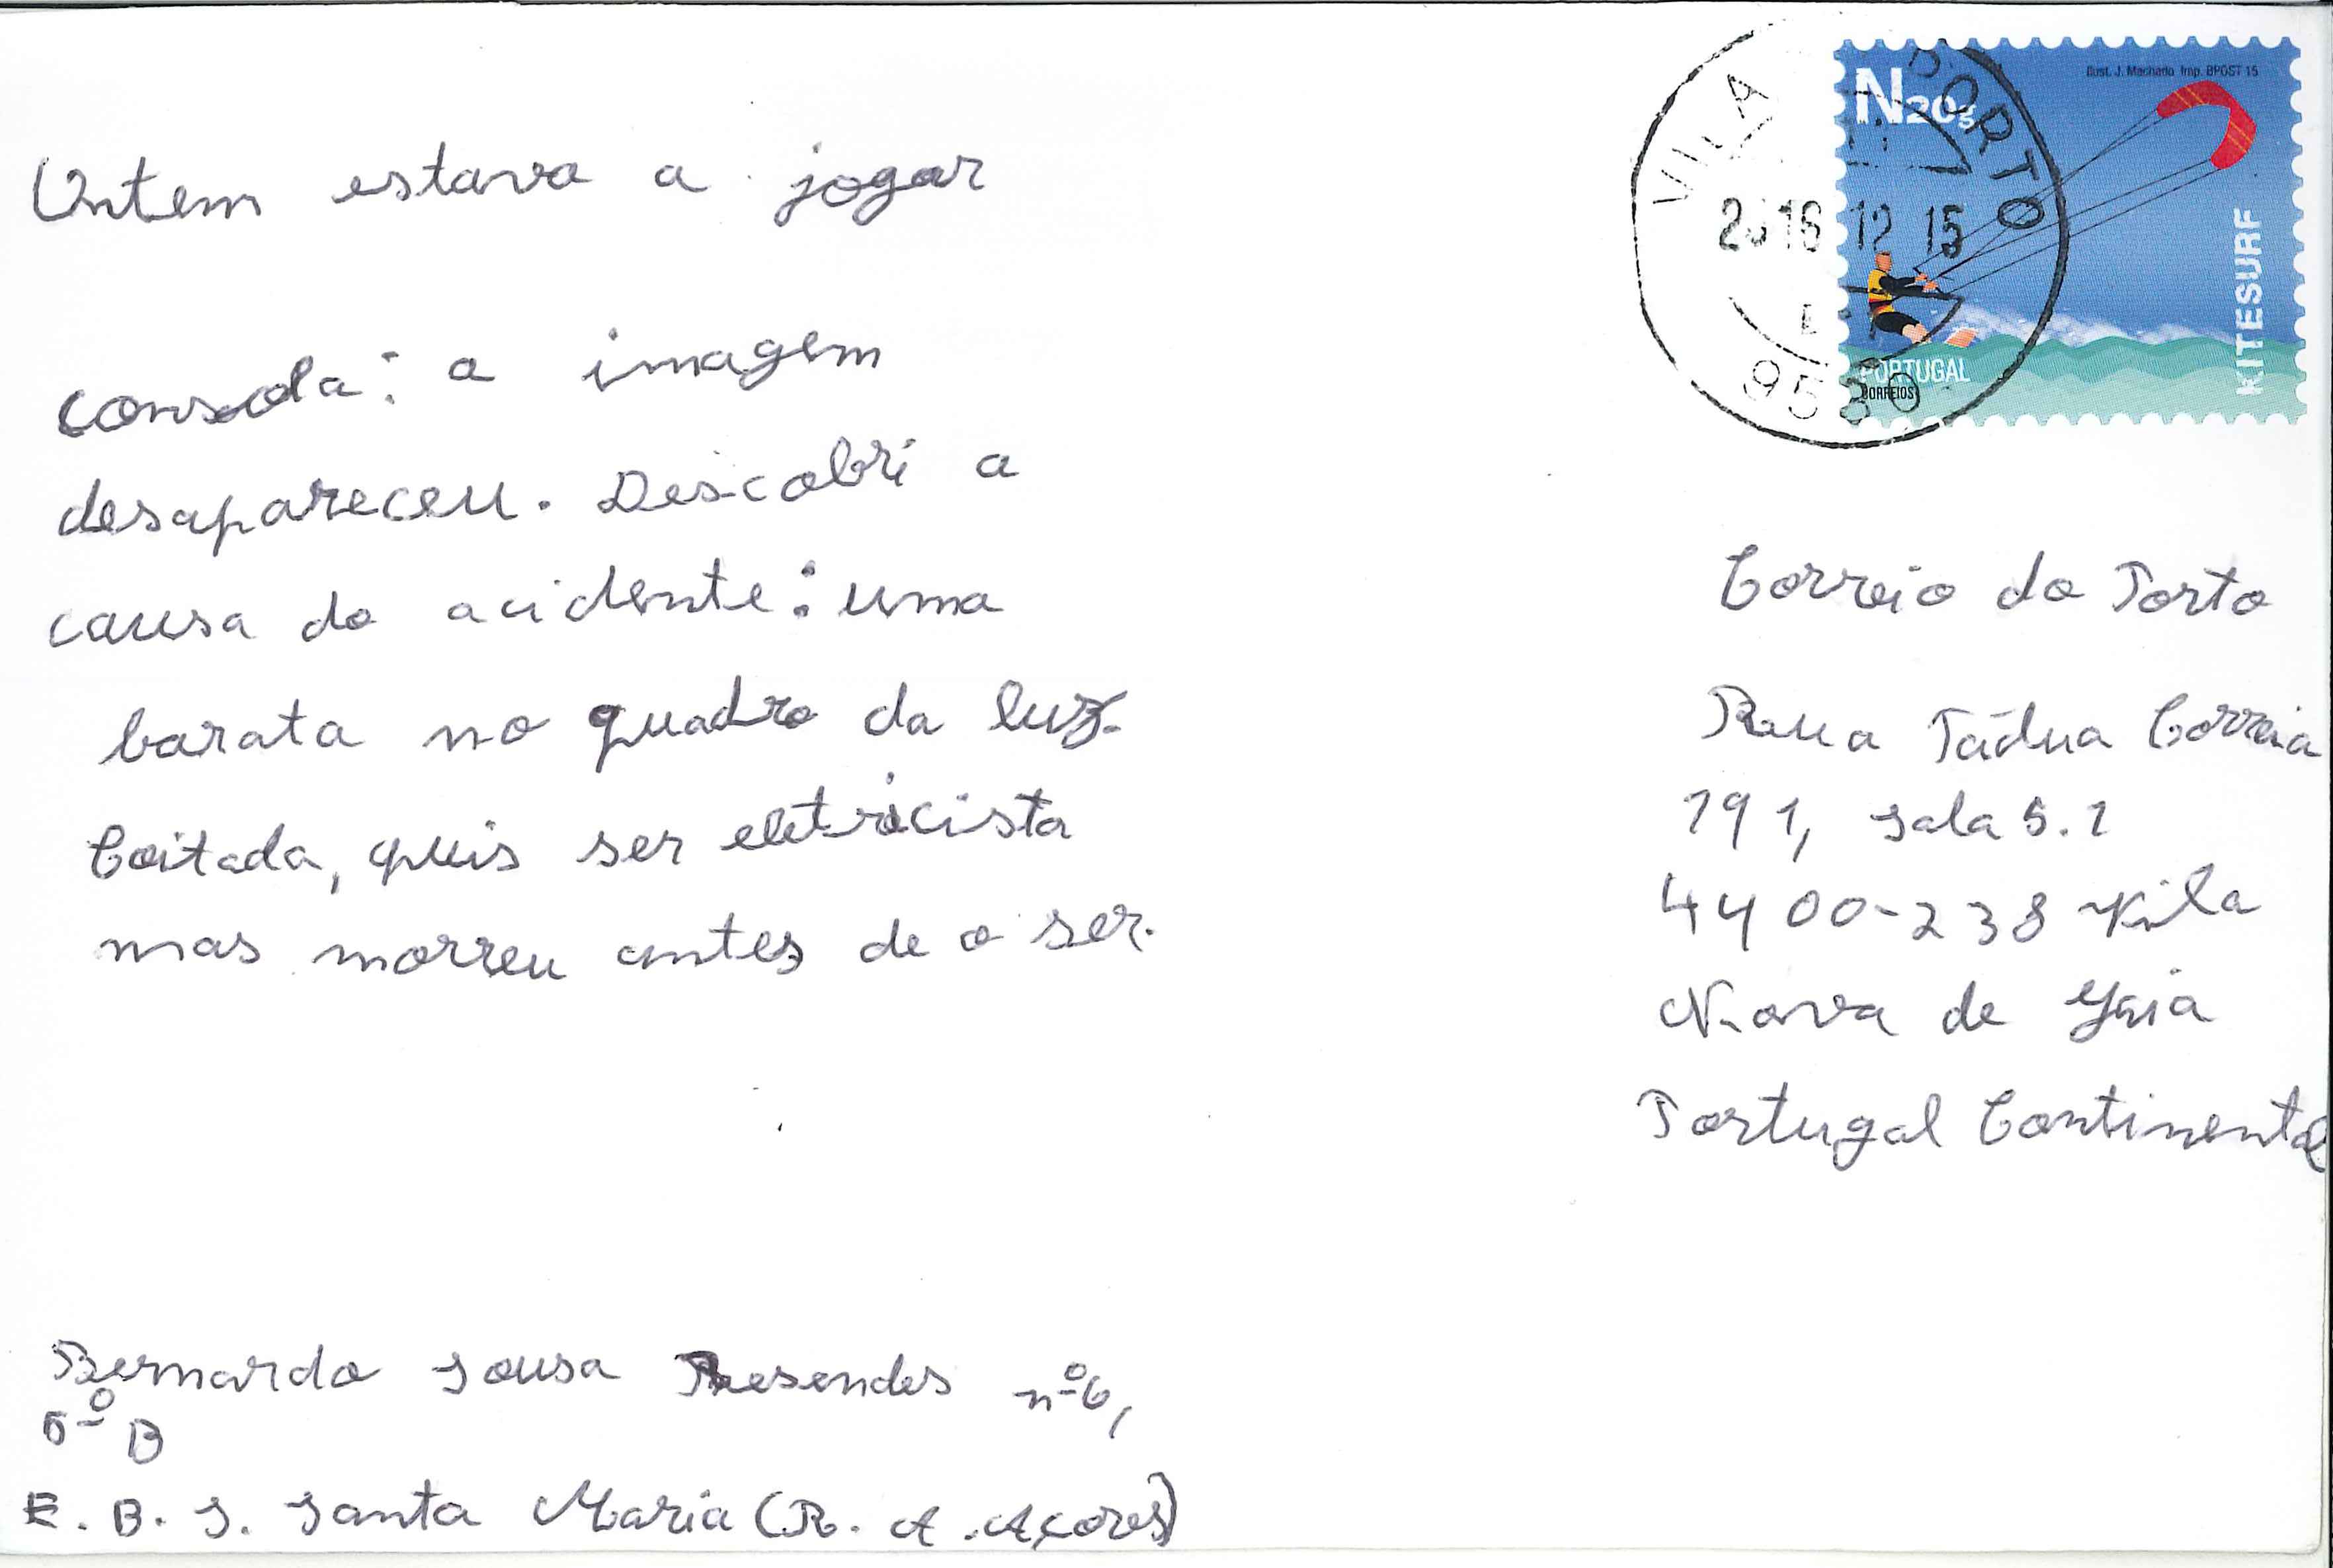 Ontem estava a jogar
consola: a imagem
desapareceu. Descobri a
causa do acidente: uma
barata no quadro da luz.
Coitada, quis ser eletricista
mas morreu antes de o ser.
Bernardo Sousa Resendes nº6,
5º B
E. B. S. Santa Maria (R. A. Açores)
VILA PORTO
2016 12 15
9580
N20g
Ilust. J. Machado Imp. BPOST 15
KITESURF
PORTUGAL
CORREIOS
Correio do Porto
Rua Pádua Correia
191, sala 5.1
4400-238 Vila
Nova de Gaia
Portugal Continental